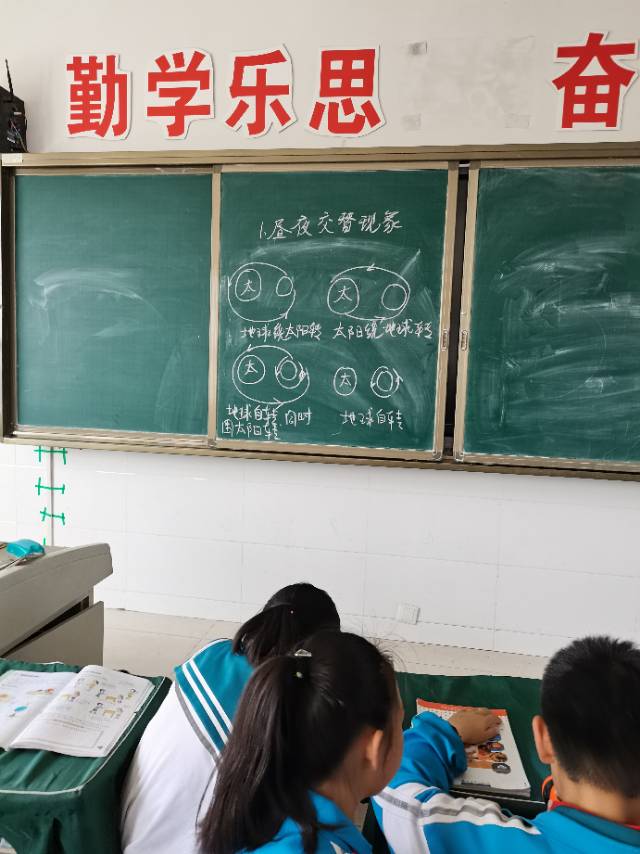 勤学乐思 奋
1.昼夜交替现象
太
太
地球绕太阳转
太阳绕地球转
太
太
地球自转同时
围太阳转
地球自转